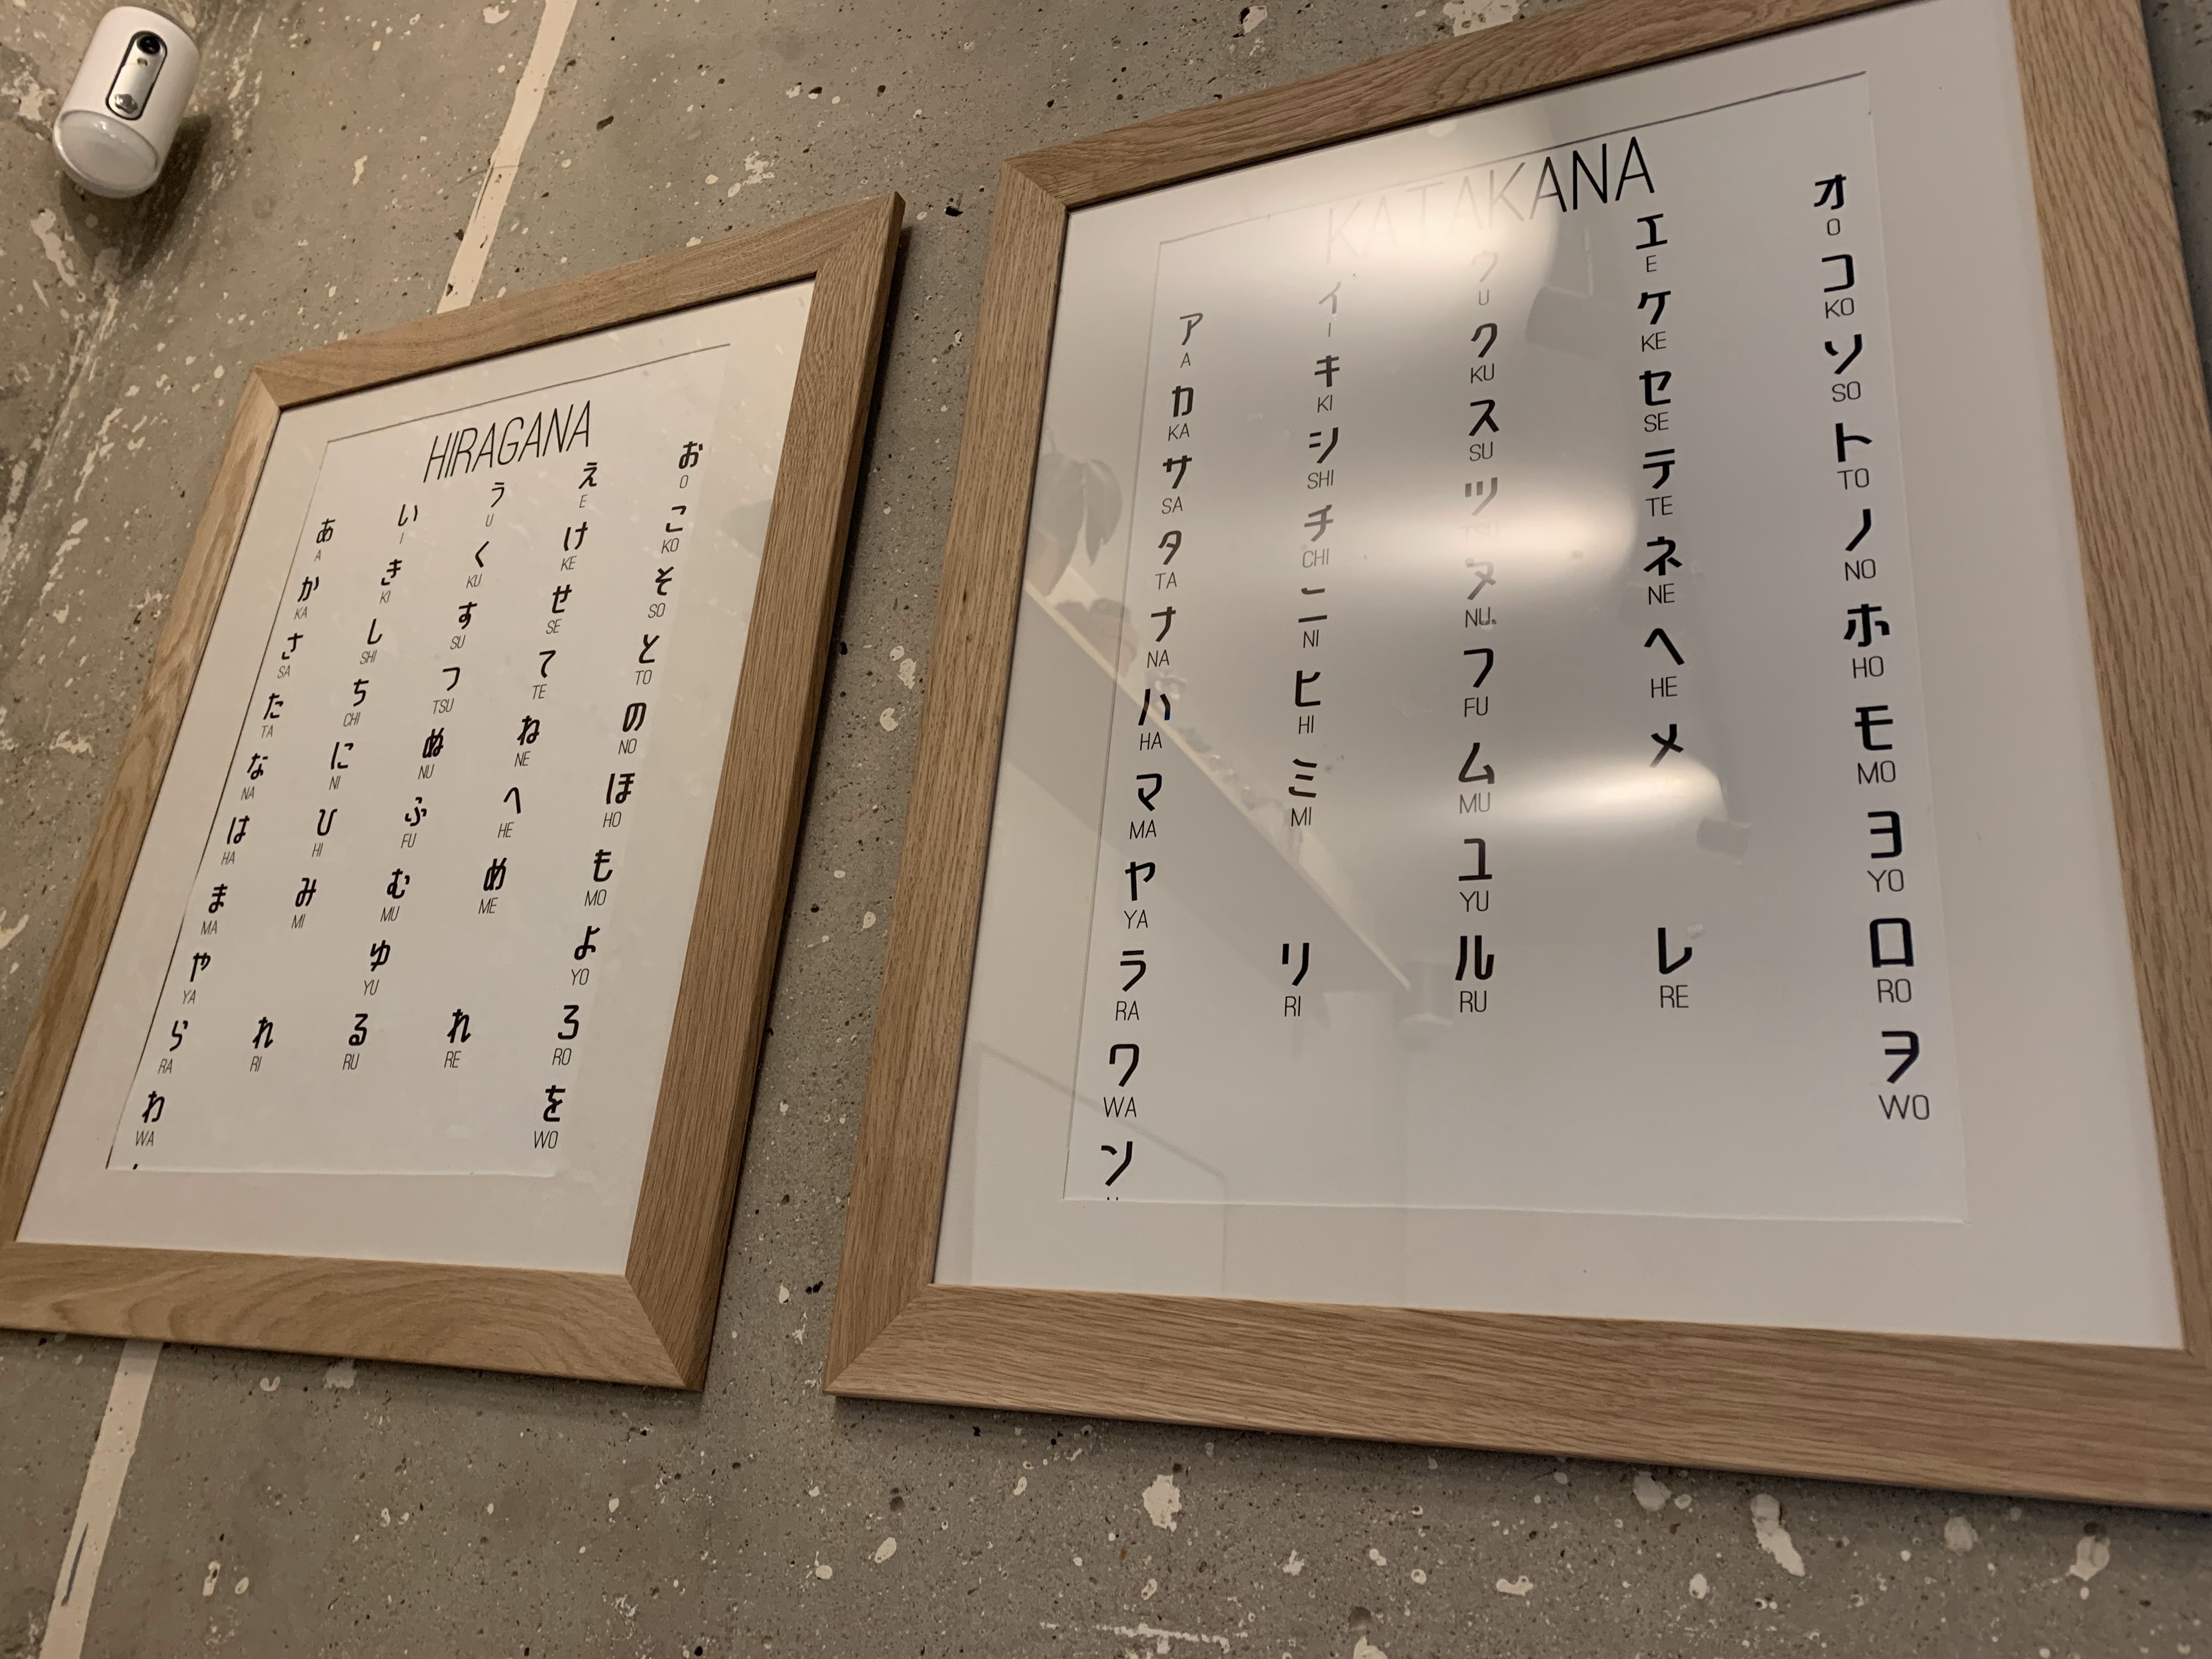 HIRAGANA
あ い う え お
A I U E O
か き く け こ
KA KI KU KE KO
さ し す せ そ
SA SHI SU SE SO
た ち つ て と
TA CHI TSU TE TO
な に ぬ ね の
NA NI NU NE NO
は ひ ふ へ ほ
HA HI FU HE HO
ま み む め も
MA MI MU ME MO
や ゆ よ
YA YU YO
ら れ る れ ろ
RA RI RU RE RO
わ を
WA WO
KATAKANA
ア イ ウ エ オ
A I U E O
カ キ ク ケ コ
KA KI KU KE KO
サ シ ス セ ソ
SA SHI SU SE SO
タ チ ツ テ ト
TA CHI TSU TE TO
ナ ニ ヌ ネ ノ
NA NI NU NE NO
ハ ヒ フ ヘ ホ
HA HI FU HE HO
マ ミ ム メ モ
MA MI MU MO
ヤ ユ ヨ
YA YU YO
ラ リ ル レ ロ
RA RI RU RE RO
ワ ヲ
WA WO
ン